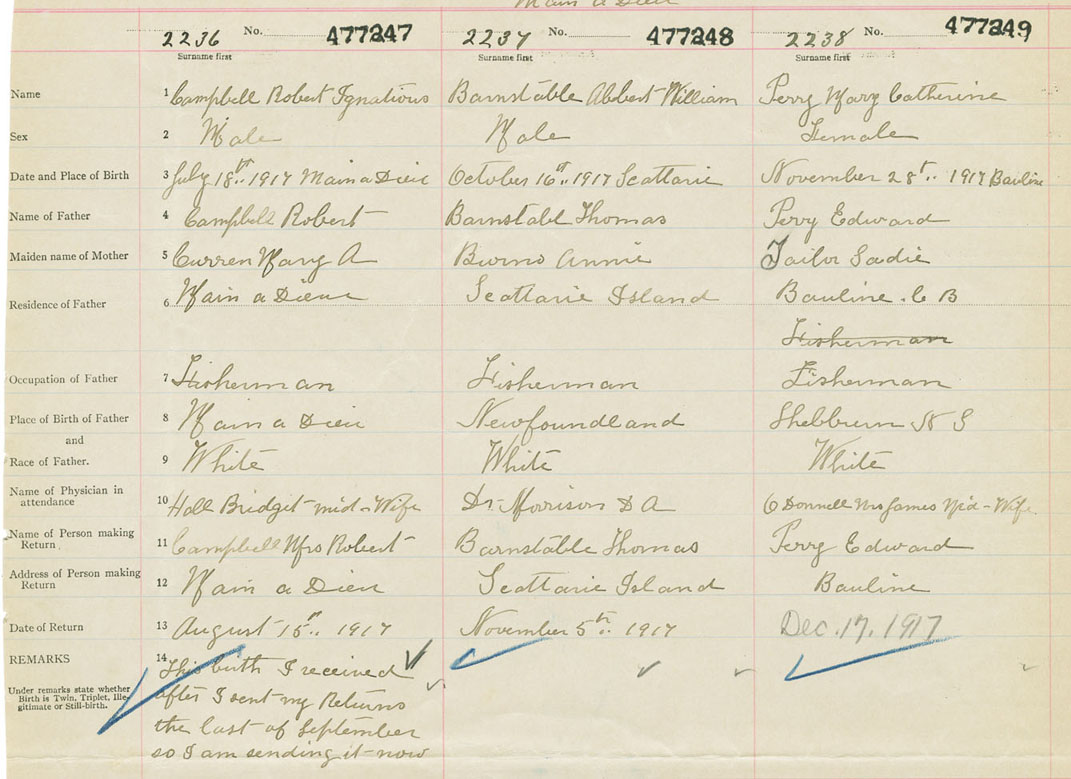 Main a Dieu
2236 No. 477247 2237 No. 477248 2238 No. 477249
Surname first Surname first Surname first
Name 1 Campbell Robert Ignatious Barnstable Albbert William Perry Mary Catherine
Sex 2 Male Male Female
Date and Place of Birth 3 July 18th.. 1917 Main a Dieu October 16th.. 1917 Scattarie November 28th.. 1917 Bauline
Name of Father 4 Campbell Robert Barnstabl Thomas Perry Edward
Maiden name of Mother 5 Curren Mary A Burns Annie Tailor Sadie
Residence of Father 6 Main a Dieu Scattarie Island Bauline . C B
Fisherman
Occupation of Father 7 Fisherman Fisherman Fisherman
Place of Birth of Father 8 Main a Dieu Newfoundland Shebburn N S
and
Race of Father. 9 White White White
Name of Physician in
attendance 10 Hall Bridget mid-Wife Dr Morrison D A O Donnell Mrs James Mid-Wife
Name of Person making
Return 11 Campbell Mrs Robert Barnstable Thomas Perry Edward
Address of Person making
Return 12 Main a Dieu Scattarie Island Bauline
Date of Return 13 August 15th.. 1917 November 5th.. 1917 Dec. 17. 1917
REMARKS 14 This birth I received
Under remarks state whether
Birth is Twin, Triplet, Ille-
gitimate or Still-birth.
after I sent my Returns
the last of September
so I am sending it now